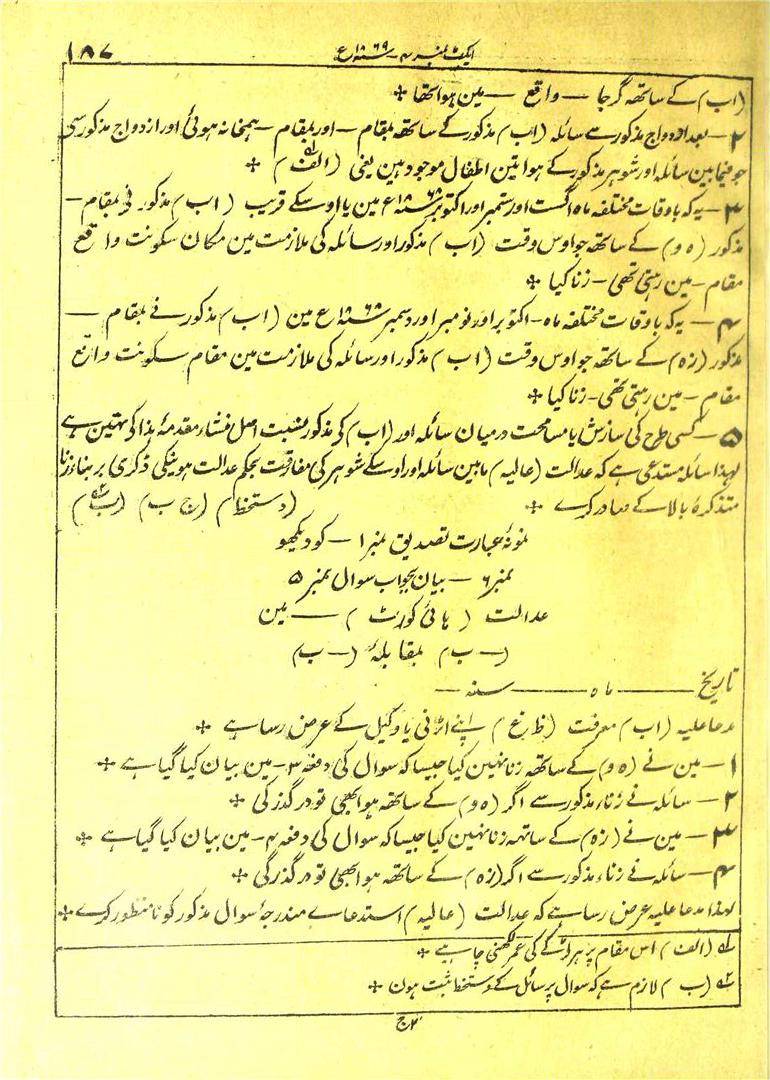 ایکٹ نمبر ۴ – سنہ ۱۸۶۹ ع
۱۸۷
(ا ب) کے ساتھ گرجا — واقع — مین ہوا تھا ÷
۲ – بعد ازدواج مذکور سے سائلہ (ا ب) مذکور کے ساتھ بمقام – اور بمقام – ہمخانہ ہوئی اور ازدواج مذکور سی
جو فیما بین سائلہ اور شوہر مذکور کے ہوا تین اطفال موجود ہین یعنی (الف ۱ے) ÷
۳ – یہ کہ باوقات مختلفہ ماہ اگست اور ستمبر اور اکتوبر سنہ ۱۸۶۸ع مین یا اوسکے قریب (ا ب) مذکور نی بمقام –
مذکور (ہ و) کے ساتھ جو اوس وقت (ا ب) مذکور اور سائلہ کی ملازمت مین مکان سکونت واقع
مقام – مین رہتی تھی – زنا کیا ÷
۴ – یہ کہ باوقات مختلفہ ماہ – اکتوبر اور نومبر اور دسمبر سنہ ۱۸۶۸ع مین (ا ب) مذکور نے بمقام —
مذکور (زہ) کے ساتھ جو اوس وقت (ا ب) مذکور اور سائلہ کی ملازمت مین مقام سکونت واقع
مقام – مین رہتی تھی – زنا کیا ÷
۵ – کسی طرح کی سازش یا مسامحت درمیان سائلہ اور (ا ب) کی مذکور بنسبت اصل منشاء مقدمۂ ہذا کی نہین ہے
لہذا سائلہ مستدعی ہے کہ عدالت (عالیہ) مابین سائلہ اور اوسکے شوہر کی مفارقت بحکم عدالت ہونیکی ڈکری بربناء زنا
متذکرۂ بالا کے صادر کرے ÷ (دستخط) (ج ب) (ب ۲ے)
نمونۂ عبارت تصدیق نمبر ۱ – کو دیکھو
نمبر ۶ – بیان بجواب سوال نمبر ۵
عدالت (ہائی کورٹ) — مین
(– ب) بمقابلۂ (– ب)
تاریخ —— ماہ —— سنہ —
مدعا علیہ (ا ب) معرفت (ظ غ) اپنے اٹرنی یا وکیل کے عرض رسا ہے ÷
۱ – مین نے (ہ و) کے ساتھ زنا نہین کیا جیسا کہ سوال کی دفعہ ۳ – مین بیان کیا گیا ہے ÷
۲ – سائلہ نے زناء مذکور سے اگر (ہ و) کے ساتھ ہوا بھی تو درگذر کی ÷
۳ – مین نے (زہ) کے ساتھہ زنا نہین کیا جیسا کہ سوال کی دفعہ ۴ – مین بیان کیا گیا ہے ÷
۴ – سائلہ نے زناء مذکور سے اگر (زہ) کے ساتھ ہوا بھی تو درگذر کی ÷
لہذا مدعا علیہ عرض رسا ہے کہ عدالت (عالیہ) استدعاے مندرجۂ سوال مذکور کو نامنظور کرے ÷
۱ے (الف) اس مقام پر ہر لڑکے کی عمر لکھنی چاہیے ÷
۲ے (ب) لازم ہے کہ سوال پر سائل کے دستخط ثبت ہون ÷